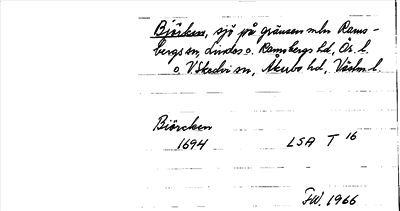 Björken, sjö på gränsen mln Rams-
bergs sn, Lindes o. Ramsbergs hd, Ör. l.
o. V. Skedvi sn, Åkerbo hd, Västm l.
Biörcken
1694 LSA T 16
FW. 1966